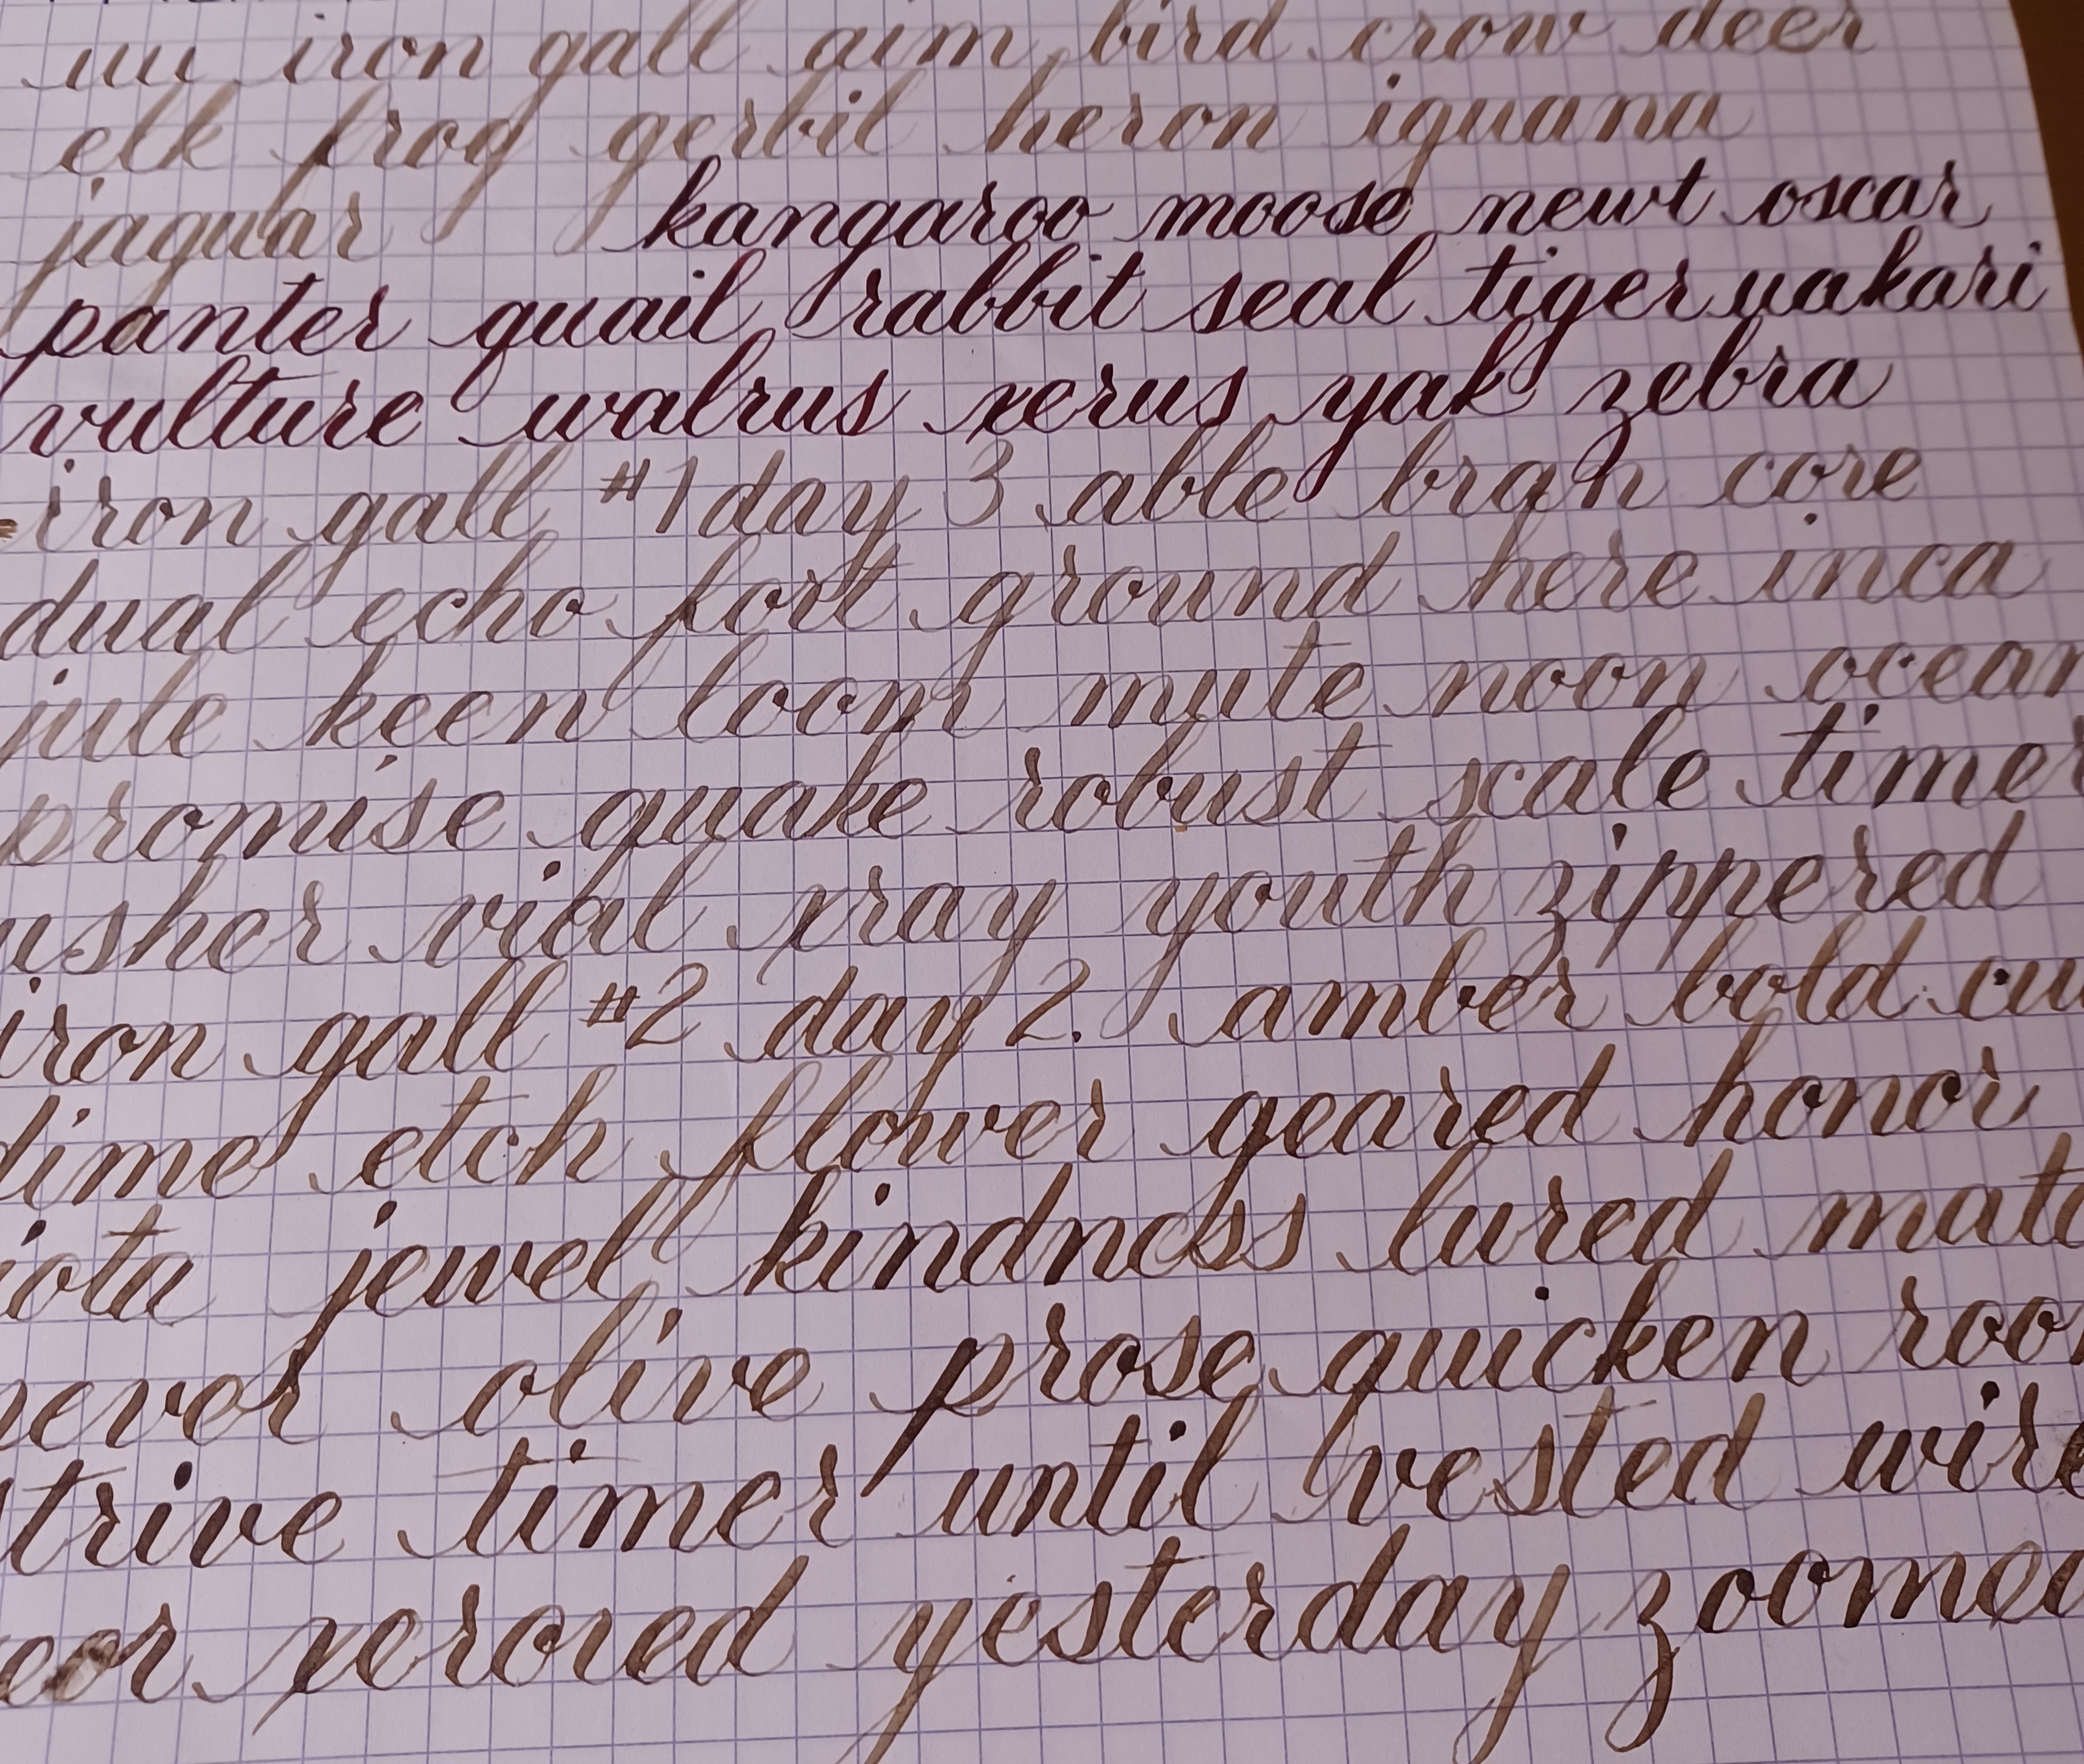 uu iron gall aim bird crow deer
elk frog gerbil heron iguana
jaguar kangaroo moose newt oscar
panter quail rabbit seal tiger uakari
vulture walrus xerus yak zebra
iron gall #1 day 3 able bran core
dual echo fort ground here inca
jule keen loom mute noon ocean
promise quake robust scale timer
usher vial xray youth zippered
iron gall #2 day 2. amber bold cu
dime etch flower geared honor
iota jewel kindness lured mate
never olive prose quicken roo
strive timer until vested wire
xerored yesterday zoomed